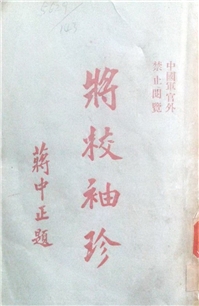 中國軍官外
禁止閱覽
將校袖珍
蔣中正題